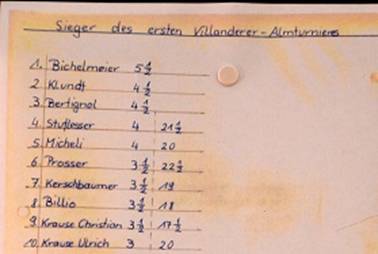 Sieger des ersten Villanderer-Almturnieres
1. Bichelmeier 5 1/2
2 Klundt 4 1/2
3. Bertignol 4 1/2
4. Stuflesser 4 21 1/2
5. Micheli 4 20
6. Prosser 3 1/2 22 1/2
7. Kerschbaumer 3 1/2 19
8. Billio 3 1/2 18
9. Krause Christian 3 1/2 17 1/2
10. Krause Ulrich 3 20